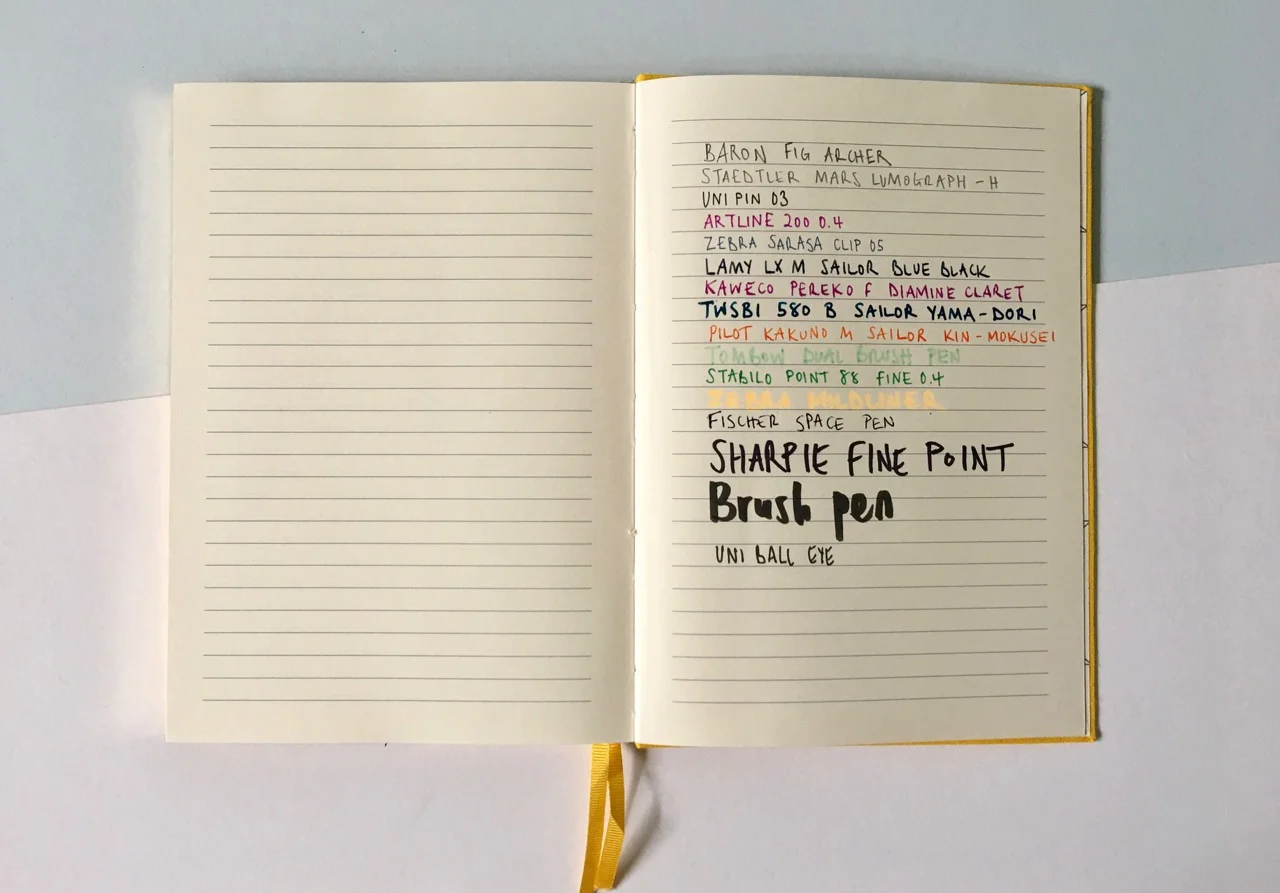 BARON FIG ARCHER
STAEDTLER MARS LUMOGRAPH - H
UNI PIN 03
ARTLINE 200 0.4
ZEBRA SARASA CLIP 05
LAMY LX M SAILOR BLUE BLACK
KAWECO PEREKO F DIAMINE CLARET
TWSBI 580 B SAILOR YAMA-DORI
PILOT KAKUNO M SAILOR KIN-MOKUSEI
TOMBOW DUAL BRUSH PEN
STABILO POINT 88 FINE 0.4
ZEBRA MILDLINER
FISCHER SPACE PEN
SHARPIE FINE POINT
Brush pen
UNI BALL EYE